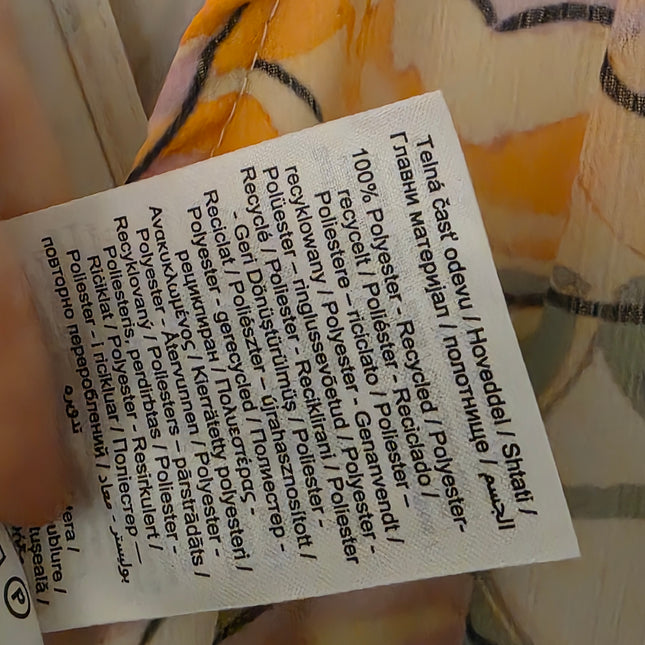 Telná časť odevu / Hoveddel / Shtati /
Главни материјал / полотнище / الجسم
100% Polyester - Recycled / Polyester-
recycelt / Poliéster - Reciclado /
Poliestere – riciclato / Poliester –
recyklowany / Polyester - Genanvendt /
Polüester – ringlussevõetud / Polyester -
Recyclé / Poliester - Reciklirani / Poliester
- Geri Dönüştürülmüş / Poliester -
Reciclat / Poliészter – újrahasznosított /
Polyester - gerecycled / Полиестер -
рециклиран / Πολυεστέρας -
Ανακυκλωμένος / Kierrätetty polyesteri /
Polyester - Återvunnen / Polyester -
Recyklovaný / Poliesters – pārstrādāts /
Poliesteris, perdirbtas / Poliester -
Riciklat / Polyester - Resirkulert /
Poliester - i ricikluar / Поліестер —
повторно перероблений / بوليستر - معاد
تدويره
tera /
ublure /
tușeală /
P